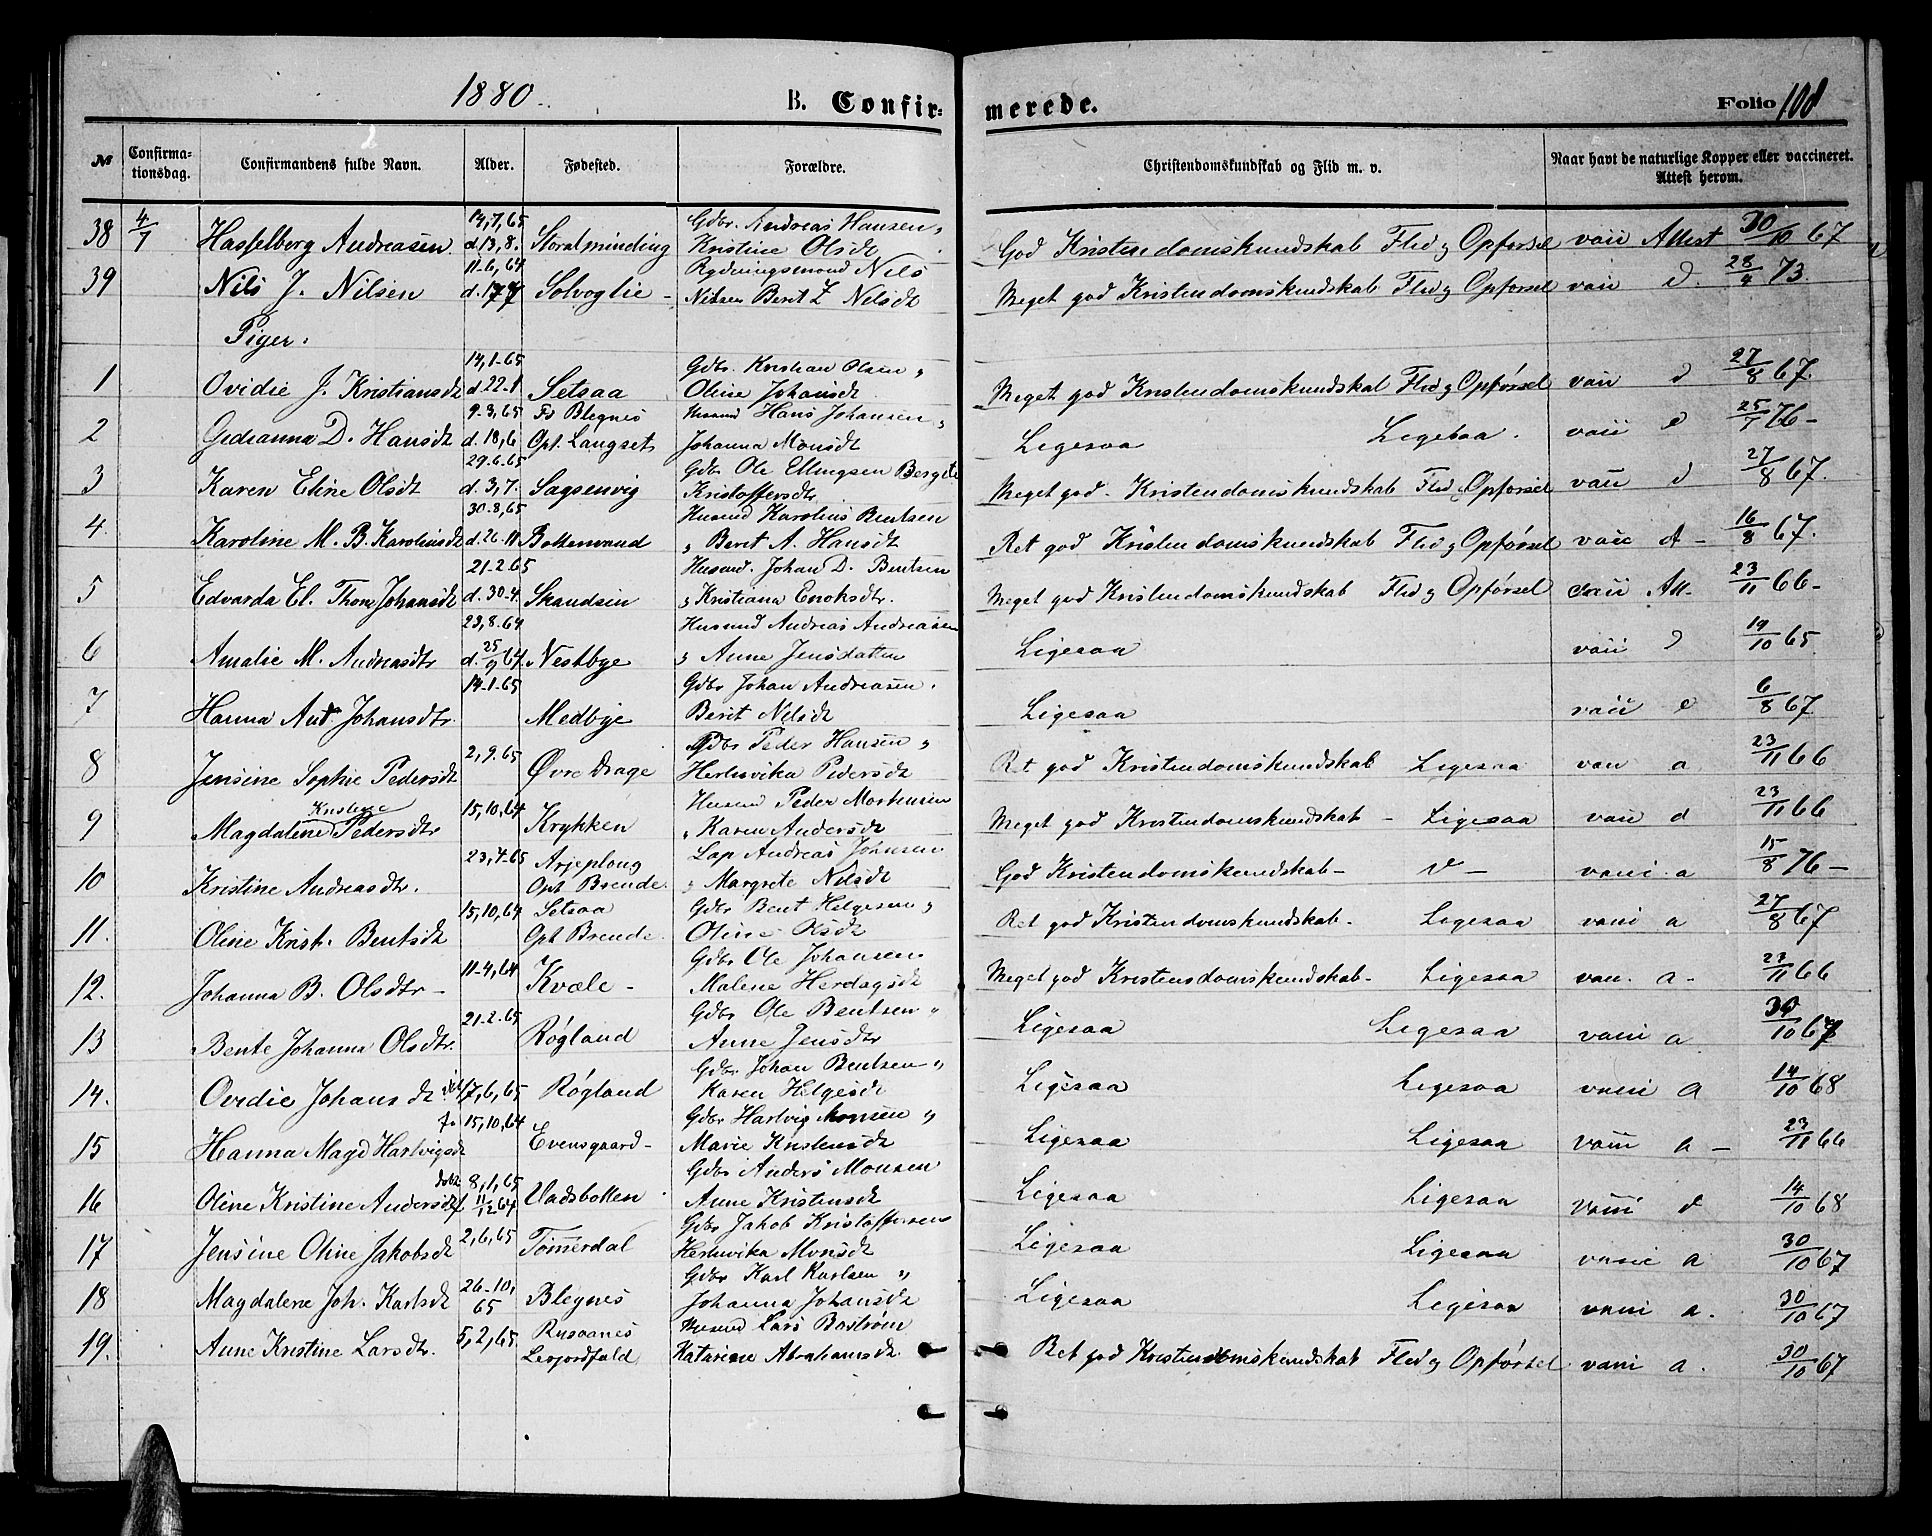 1880. B. Confirmerede. Folio 108
№ Confirmationsdag. Confirmandens fulde Navn. Alder. Fødested. Forældre. Christendomskundskab og Flid m. v. Naar havt de naturlige Kopper eller vaccineret. Attest herom.
38 4/7 Hasselberg Andreasen. 14,7,65 d.13,8. Storalminding Gdbr. Andreas Hansen, Kristine Olsdt. God Kristendomskundskab Flid og Opførsel vaii Attest 30/10 67
39 Nils J. Nilsen 11.6,64 d.17 Solvoglie - Nils Nilsen Berit Z Nilsdt Meget god Kristendomskundskab Flid og Opførsel vaii d. 28/4 73.
Piger.
1 Ovidie J. Kristiansdt 14,1-65 d.22-1 Setsaa Gdbr. Kristian Olsen, Oline Johansdt Meget god Kristendomskundskab Flid og Opførsel vaii d 27/8 67.
2 Gidianna D. Hansdt 9-3,65 d.18,6 Fs Blegnes Opt. Langset Husmd Hans Johansen, Johanna Monsdt Ligesaa Ligesaa. vaii d 25/7 76-
3 Karen Eline Olsdt 29.6-65 d. 3,7. Sagsenvig Gdbr Ole Ellingsen Bergete Kristoffersdtr. Meget god. Kristendomskundskab Flid, Opførsel vaii d 27/8 67.
4. Karoline M. B. Karolinsdt 30-8,65 d.26.11 Bottenvand Husmd Karolius Bentsen, Berit A. Hansdt Ret god Kristendomskundskab Flid og Opførsel vaii d- 16/8 67.
5 Edvarda El. Thone Johansdt 21-2.65 d. 30-4. Skandsen Husmd. Johan D. Bentsen, Kristiana Enoksdtr. Meget god Kristendomskundskab Flid og Opførsel vaii Att- 23/11 66-
6 Amalie M. Andreasdtr 23,8.64 d. 25/9 64. Nestbye Husmd Andreas Andreasen, Anne Jensdatter Ligesaa vaii d 19/10 65.
7 Hanna Ant Johansdtr. 14-1-65 Medbye Gdbr Johan Andreasen. Berit Nilsdt Ligesaa vaii d 6/8 67.
8 Jensine Sophie Pedersdt 2,9.65 Øvre Drage Gdbr Peder Hansen, Herlsvika Pedersdt Ret god Kristendomskundskab Ligesaa van a 23/11 66
9 Magdalene Pedersdtr 15,10,64 Krykken Husmd Peder Mortensen, Karen Andersdt Meget god Kristendomskundskab - Ligesaa vaii d 23/11 66
10 Kristine Andreasdtr. 23,4-65 Arjeploug Opt. Brende. Lap Andreas Johnsen, Margrete Nilsdt God Kristendomskundskab- d - vani. a 15/8 76-
11. Oline Krist. Bentsdt 15,10,64 Setsaa Opt Brende. Gdbr Bent Helgesen, Oline Olsdt Ret god Kristendomskundskab- Ligesaa vani a 27/8 67
12. Johanna B. Olsdtr- 11-4,64 Kvæle- Gdbr Ole Johansen Malene Herdagsdt Meget god Kristensdomskundskab- Ligesaa van. a- 23/11 66
13 Bente Johanna Olsdtr. 21-2-65 Røgland Gdbr Ole Bentsen, Anne Jensdtr Ligesaa Ligesaa vani a 30/10 67
14. Ovidie Johansdt 17,6,65 Røgland Gdbr. Johan Bentsen, Karen Helgesdt Ligesaa Ligesaa vani a 14/10 68
15 Hanna Magd Hartvigsdt f. 15,10,64 Evensgaard- Gdbr Hartvig Monsen, Marie Kristensdt Ligesaa Ligesaa vani a - 23/11 66
16 Oline Kristine Andersdt døbt 8,1,65 f 11/12 64 Vadsbotten. Gdbr Anders Monsen Anne Kristensdt Ligesaa Ligesaa vani d 14/10 68
17 Jensine Oline Jakobsdt 2,6,65 Tømerdal Gdbr Jakob Kristoffersen Herlsvika Monsdt Ligesaa Ligesaa vani a 30/10 67
18 Magdalene Joh. Karlsdt 26-10,65 Blegnes Gdbr Karl Karlsen, Johanna Johansdt Ligesaa Ligesaa vani a. 30/10 67
19. Anne Kristine Larsdtr. 5,2,65. Rusaanes Husmd Lars Boström Katarine Abrahamsdt. Ret god Kristendomskundskab Flid og Opførsel. vani a. 30/10 67